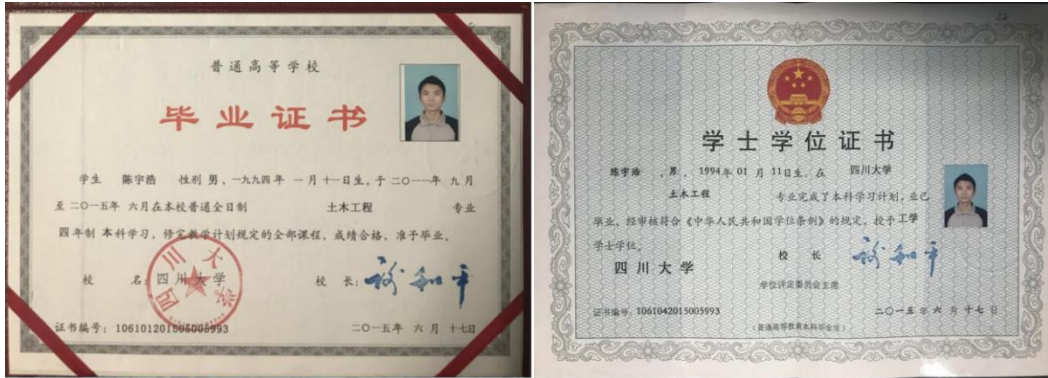 普通高等学校
毕业证书
学生 陈宇浩 性别 男，一九九四年 一月 十一日生，于二〇一一年 九月
至二〇一五年 六月在本校普通全日制 土木工程 专业
四年制 本科学习，修完教学计划规定的全部课程，成绩合格，准予毕业。
校 名：四川大学 校 长：谢和平
四川大学
证书编号：106101201505005993 二〇一五年 六月 十七日
学士学位证书
陈宇浩 ，男，1994年 01 月 11日生。在 四川大学
土木工程 专业完成了本科学习计划，业已
毕业，经审核符合《中华人民共和国学位条例》的规定，授予 工学
学士学位。
四川大学 校 长 谢和平
学位评定委员会主席
证书编号：1061042015005993 二〇一五年 六 月 十七 日
（普通高等教育本科毕业生）